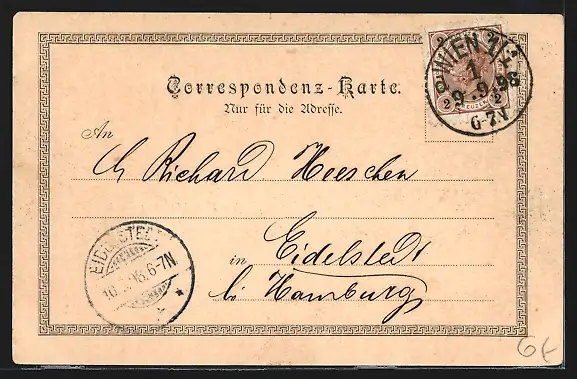 WIEN 1/1
1
9.9.98
6-7.N
2 KREUZER 2
Correspondenz-Karte.
Nur für die Adresse.
An
H Richard Heeschen
in Eidelstedt
b/ Hamburg
EIDELSTEDT
6-7N
6f